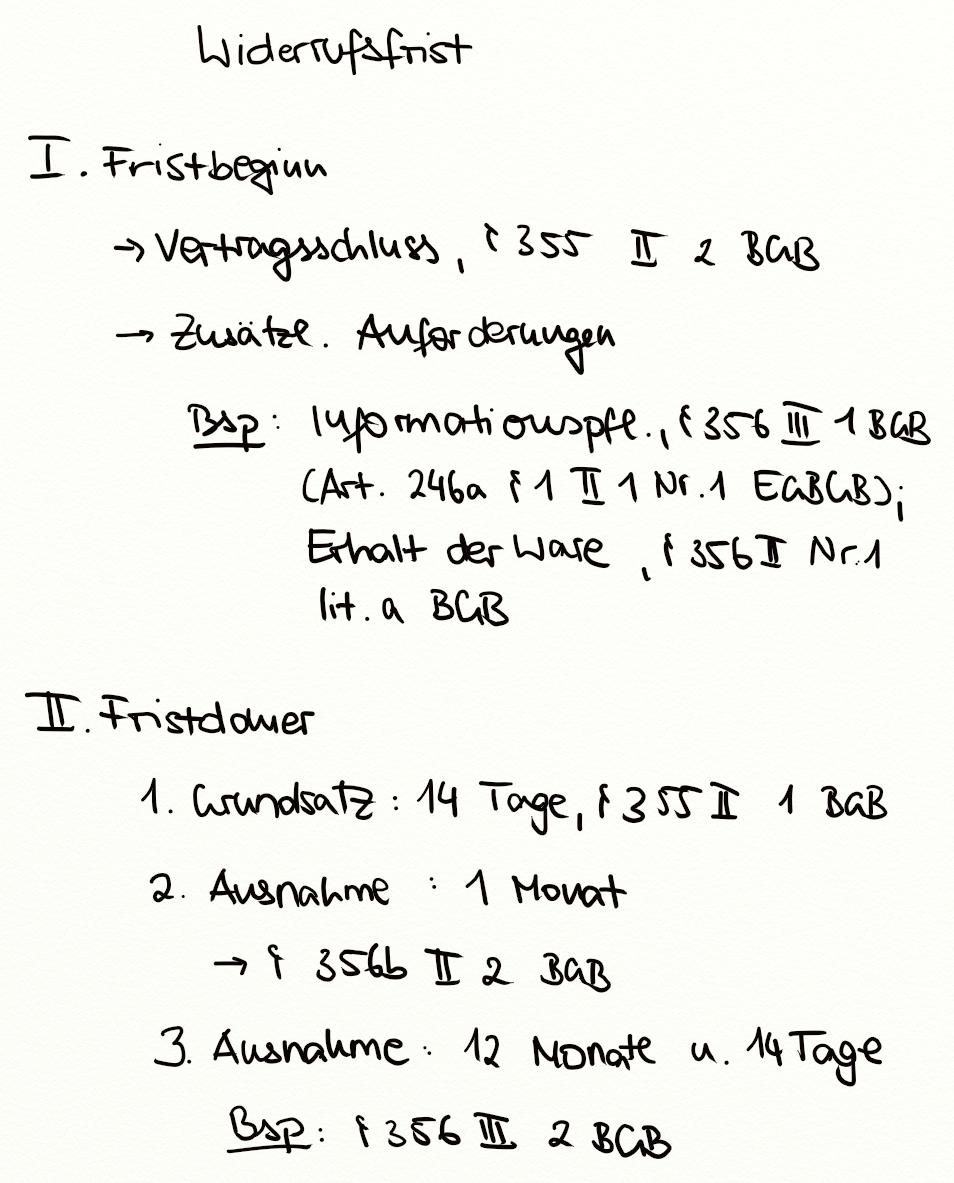 Widerrufsfrist
I. Fristbeginn
→ Vertragsschluss, § 355 II 2 BGB
→ Zusätzl. Anforderungen
Bsp: Informationspfl., § 356 III 1 BGB
(Art. 246a § 1 II 1 Nr. 1 EGBGB);
Erhalt der Ware, § 356 II Nr. 1
lit. a BGB
II. Fristdauer
1. Grundsatz: 14 Tage, § 355 II 1 BGB
2. Ausnahme: 1 Monat
→ § 356b II 2 BGB
3. Ausnahme: 12 Monate u. 14 Tage
Bsp: § 356 III 2 BGB